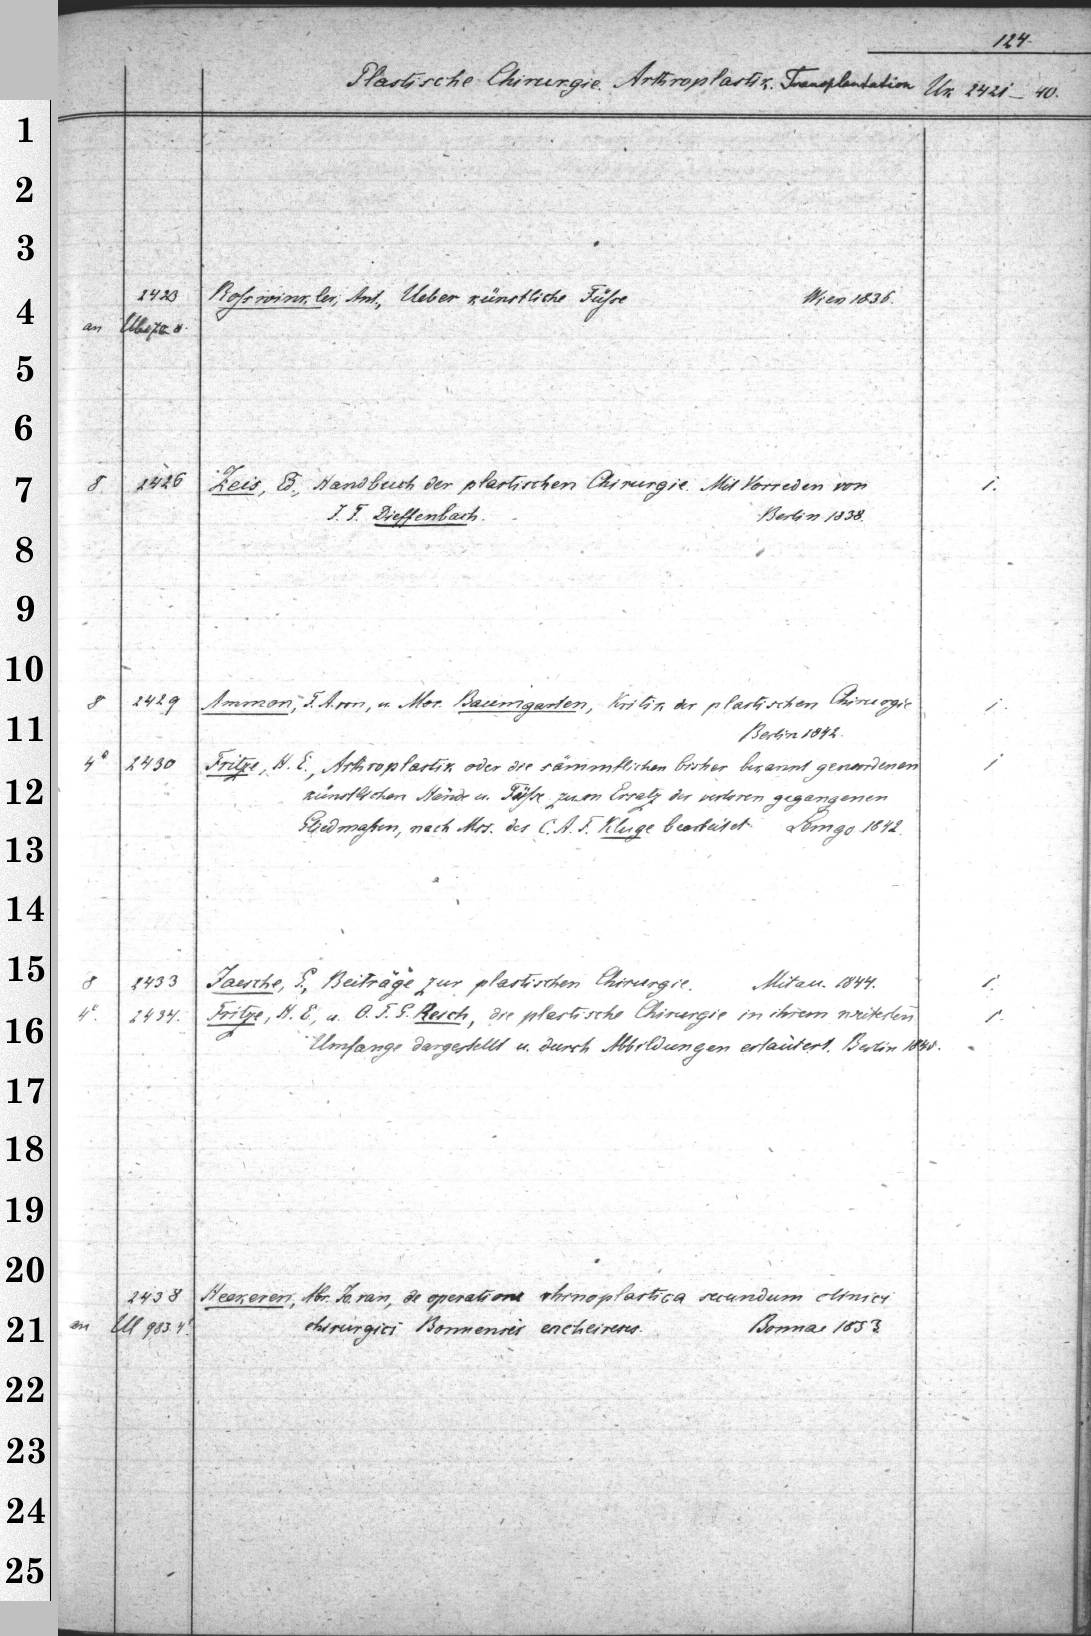 124.
Plastische Chirurgie. Arthroplastik. Transplantation Ur 2421 – 40.
1
2
3
2423 Rosswinkler, Ant., Ueber künstliche Füsse Wien 1836.
4
an
5
6
7
8 2426 Zeis, E., Handbuch der plastischen Chirurgie. Mit Vorreden von 1.
J. F. Dieffenbach. Berlin 1838.
8
9
10
8 2429 Ammon, F. A. von, u. Mor. Baumgarten, Kritik der plastischen Chirurgie 1.
11
Berlin 1842.
4° 2430 Fritze, H. E., Arthroplastik oder die sämmtlichen bisher bekannt gewordenen 1
12
künstlichen Hände u. Füsse zum Ersatz der verloren gegangenen
Gliedmassen, nach Mss. des C. A. F. Kluge bearbeitet. Lemgo 1842.
13
14
15
8 2433 Jaesche, G., Beiträge zur plastischen Chirurgie. Mitau. 1844. 1.
4°. 2434. Fritze, H. E., u. O. F. G. Reich, die plastische Chirurgie in ihrem weitesten 1.
16
Umfange dargestellt u. durch Abbildungen erläutert. Berlin
17
18
19
20
2438 Heekeren, Abr. de operatione rhinoplastica secundum clinici
21
an Ul 983.4° chirurgici Bonnensis encheireses. Bonnae 1853
22
23
24
25